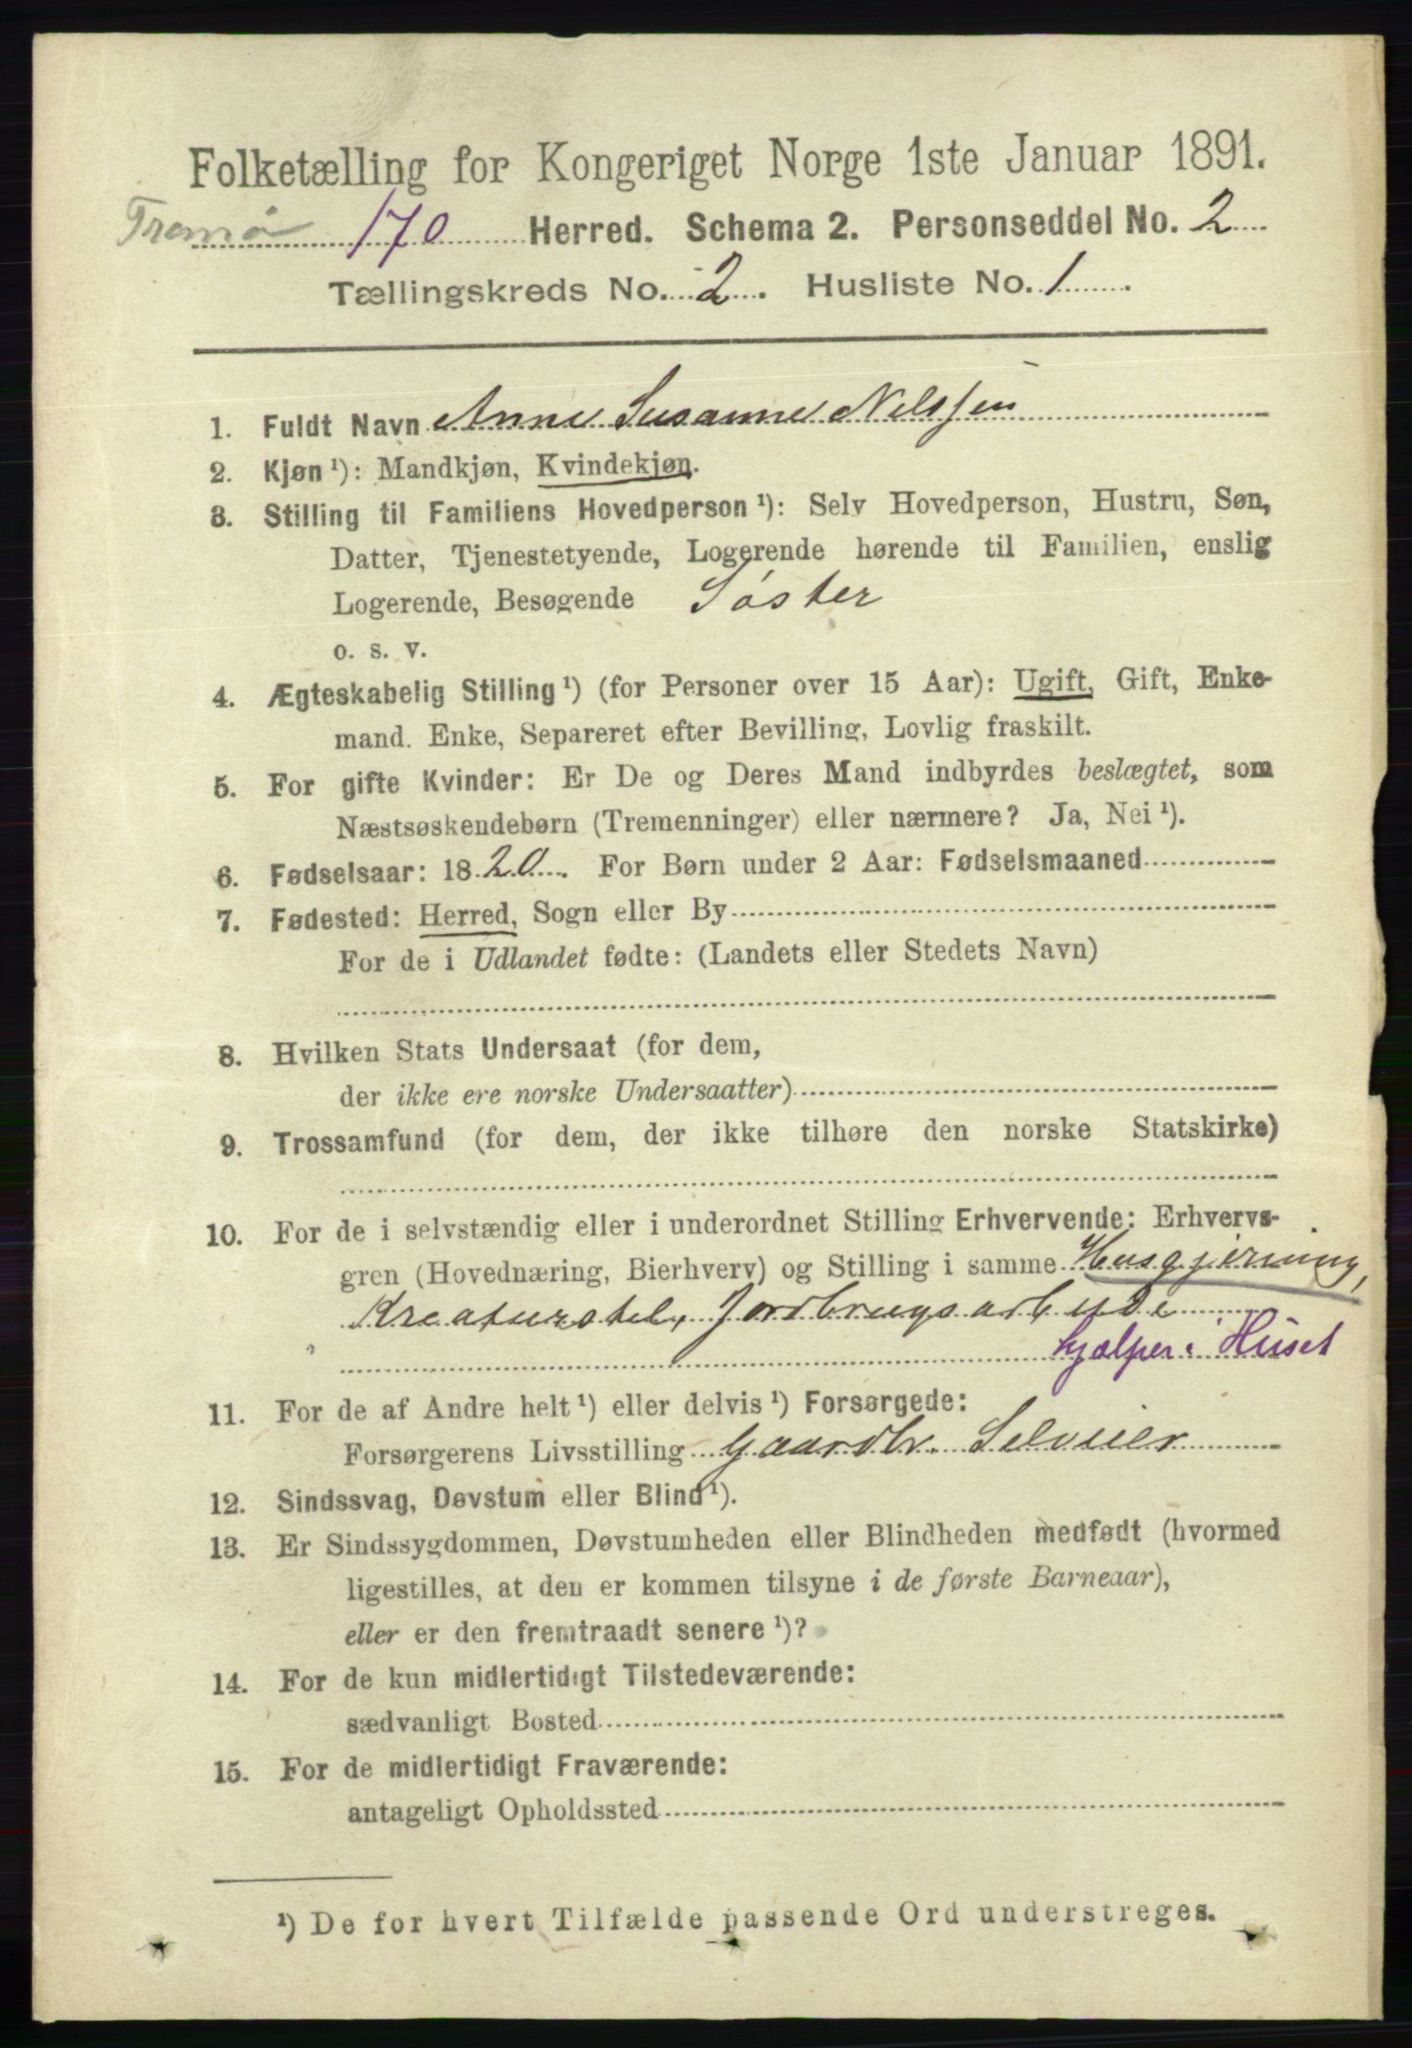 Folketælling for Kongeriget Norge 1ste Januar 1891.
Tromø 170 Herred. Schema 2. Personseddel No. 2
Tællingskreds No. 2. Husliste No. 1.
1. Fuldt Navn Anne Susanne Nilssen
2. Kjøn ¹): Mandkjøn, Kvindekjøn.
3. Stilling til Familiens Hovedperson ¹): Selv Hovedperson, Hustru, Søn,
Datter, Tjenestetyende, Logerende hørende til Familien, enslig
Logerende, Besøgende Søster
o. s. v.
4. Ægteskabelig Stilling ¹) (for Personer over 15 Aar): Ugift, Gift, Enke-
mand. Enke, Separeret efter Bevilling, Lovlig fraskilt.
5. For gifte Kvinder: Er De og Deres Mand indbyrdes beslægtet, som
Næstsøskendebørn (Tremenninger) eller nærmere? Ja, Nei ¹).
6. Fødselsaar: 1820. For Børn under 2 Aar: Fødselsmaaned
7. Fødested: Herred, Sogn eller By
For de i Udlandet fødte: (Landets eller Stedets Navn)
8. Hvilken Stats Undersaat (for dem,
der ikke ere norske Undersaatter)
9. Trossamfund (for dem, der ikke tilhøre den norske Statskirke)
10. For de i selvstændig eller i underordnet Stilling Erhvervende: Erhvervs-
gren (Hovednæring, Bierhverv) og Stilling i samme Husgjerning,
Kreaturstel, Jordbrugsarbeide
hjælper i Huset
11. For de af Andre helt ¹) eller delvis ¹) Forsørgede:
Forsørgerens Livsstilling Gaardbr. Selveier
12. Sindssvag, Døvstum eller Blind ¹).
13. Er Sindssygdommen, Døvstumheden eller Blindheden medfødt (hvormed
ligestilles, at den er kommen tilsyne i de første Barneaar),
eller er den fremtraadt senere ¹)?
14. For de kun midlertidigt Tilstedeværende:
sædvanligt Bosted
15. For de midlertidigt Fraværende:
antageligt Opholdssted
¹) De for hvert Tilfælde passende Ord understreges.